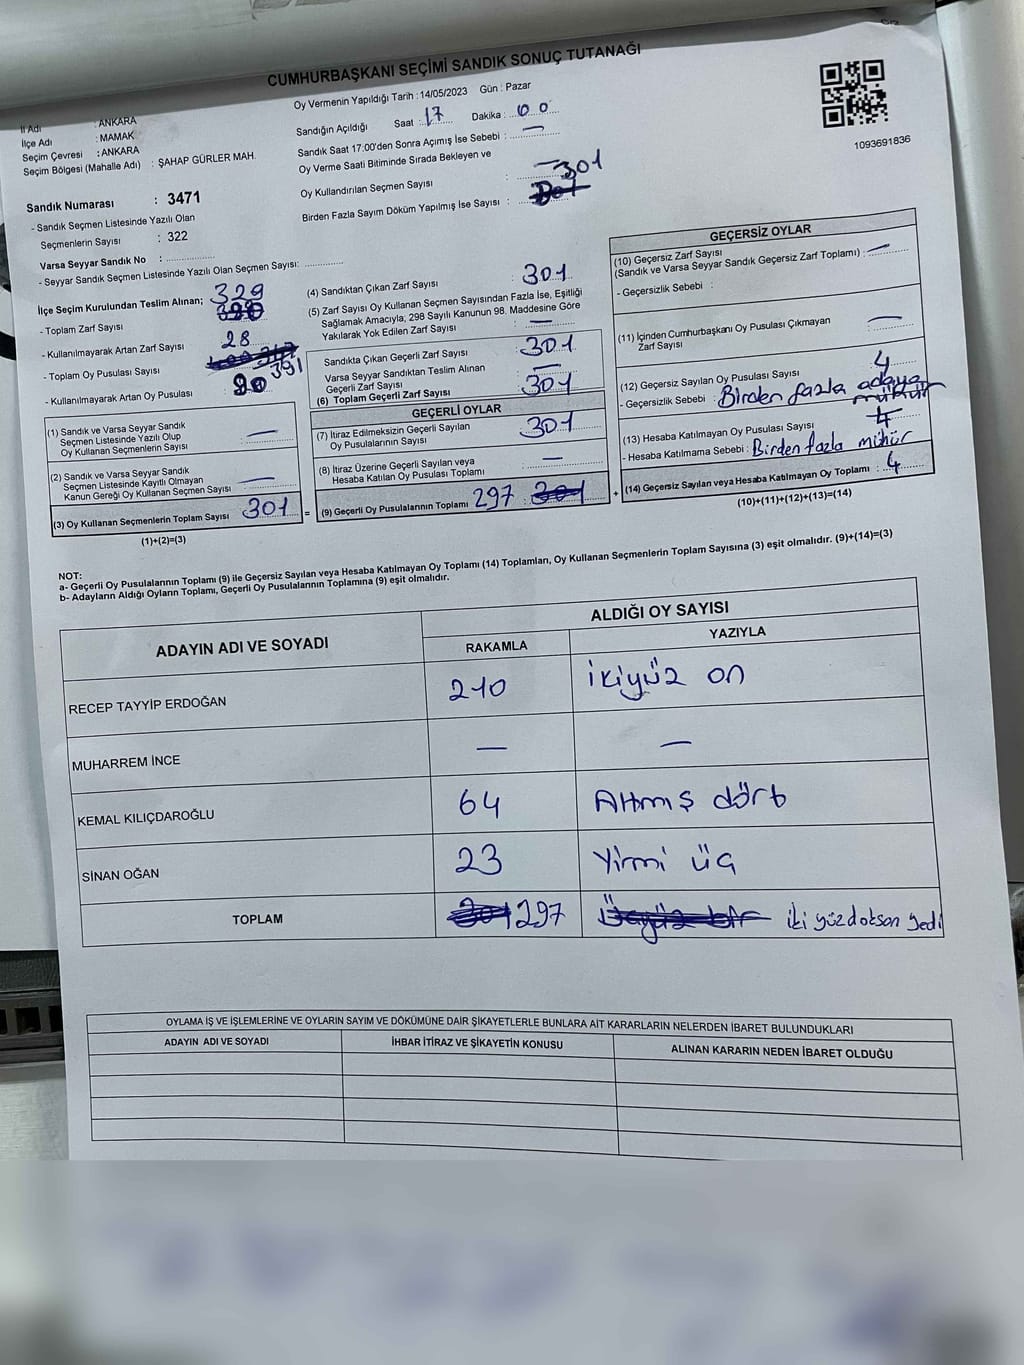 CUMHURBAŞKANI SEÇİMİ SANDIK SONUÇ TUTANAĞI
Oy Vermenin Yapıldığı Tarih : 14/05/2023 Gün : Pazar
İl Adı : ANKARA
İlçe Adı : MAMAK
Seçim Çevresi : ANKARA
Seçim Bölgesi (Mahalle Adı) : ŞAHAP GÜRLER MAH.
Sandık Numarası : 3471
- Sandık Seçmen Listesinde Yazılı Olan
Seçmenlerin Sayısı : 322
Varsa Seyyar Sandık No :
- Seyyar Sandık Seçmen Listesinde Yazılı Olan Seçmen Sayısı:
Sandığın Açıldığı Saat : 17 Dakika : 00
Sandık Saat 17:00'den Sonra Açımış İse Sebebi : —
Oy Verme Saati Bitiminde Sırada Bekleyen ve
Oy Kullandırılan Seçmen Sayısı : — 301
Birden Fazla Sayım Döküm Yapılmış İse Sayısı :
1093691836
İlçe Seçim Kurulundan Teslim Alınan; 329
- Toplam Zarf Sayısı
- Kullanılmayarak Artan Zarf Sayısı 28
- Toplam Oy Pusulası Sayısı 391
- Kullanılmayarak Artan Oy Pusulası 90
(1) Sandık ve Varsa Seyyar Sandık
Seçmen Listesinde Yazılı Olup
Oy Kullanan Seçmenlerin Sayısı —
(2) Sandık ve Varsa Seyyar Sandık
Seçmen Listesinde Kayıtlı Olmayan
Kanun Gereği Oy Kullanan Seçmen Sayısı —
(3) Oy Kullanan Seçmenlerin Toplam Sayısı 301 =
(1)+(2)=(3)
(4) Sandıktan Çıkan Zarf Sayısı : 301
(5) Zarf Sayısı Oy Kullanan Seçmen Sayısından Fazla İse, Eşitliği
Sağlamak Amacıyla; 298 Sayılı Kanunun 98. Maddesine Göre
Yakılarak Yok Edilen Zarf Sayısı : —
Sandıkta Çıkan Geçerli Zarf Sayısı : 301
Varsa Seyyar Sandıktan Teslim Alınan
Geçerli Zarf Sayısı : —
(6) Toplam Geçerli Zarf Sayısı : 301
GEÇERLİ OYLAR
(7) İtiraz Edilmeksizin Geçerli Sayılan
Oy Pusulalarının Sayısı : 301
(8) İtiraz Üzerine Geçerli Sayılan veya
Hesaba Katılan Oy Pusulası Toplamı : —
(9) Geçerli Oy Pusulalarının Toplamı 297 : 301 +
GEÇERSİZ OYLAR
(10) Geçersiz Zarf Sayısı
(Sandık ve Varsa Seyyar Sandık Geçersiz Zarf Toplamı) : —
- Geçersizlik Sebebi :
(11) İçinden Cumhurbaşkanı Oy Pusulası Çıkmayan
Zarf Sayısı : —
(12) Geçersiz Sayılan Oy Pusulası Sayısı : 4
- Geçersizlik Sebebi : Birden fazla adaya
mühür
(13) Hesaba Katılmayan Oy Pusulası Sayısı : 4
- Hesaba Katılmama Sebebi : Birden fazla mühür
(14) Geçersiz Sayılan veya Hesaba Katılmayan Oy Toplamı : 4
(10)+(11)+(12)+(13)=(14)
NOT:
a- Geçerli Oy Pusulalarının Toplamı (9) ile Geçersiz Sayılan veya Hesaba Katılmayan Oy Toplamı (14) Toplamları, Oy Kullanan Seçmenlerin Toplam Sayısına (3) eşit olmalıdır. (9)+(14)=(3)
b- Adayların Aldığı Oyların Toplamı, Geçerli Oy Pusulalarının Toplamına (9) eşit olmalıdır.
ADAYIN ADI VE SOYADI
ALDIĞI OY SAYISI
RAKAMLA YAZIYLA
RECEP TAYYİP ERDOĞAN 210 ikiyüz on
MUHARREM İNCE — —
KEMAL KILIÇDAROĞLU 64 Altmış dört
SİNAN OĞAN 23 Yirmi üç
TOPLAM 301 297 Üçyüz bir iki yüz doksan yedi
OYLAMA İŞ VE İŞLEMLERİNE VE OYLARIN SAYIM VE DÖKÜMÜNE DAİR ŞİKAYETLERLE BUNLARA AİT KARARLARIN NELERDEN İBARET BULUNDUKLARI
ADAYIN ADI VE SOYADI İHBAR İTİRAZ VE ŞİKAYETİN KONUSU ALINAN KARARIN NEDEN İBARET OLDUĞU